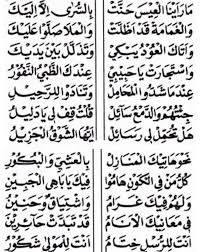 مَارَأَيْنَا الْعِيْسَ حَنَّتْ بِالسُّرَى إِلَّا إِلَيْكَ
وَالْغَمَامَة قَدْ أَظَلَّتْ وَالْمَلَا صَلُّوْا عَلَيْكَ
وَأَتَاكَ الْعُوْدُ يَبْكِيْ وَتَذَلَّلْ بَيْنَ يَدَيْكَ
وَاسْتَجَارَتْ يَاحَبِيْبِيْ عِنْدَكَ الظَّبْيُ النَّفُوْرُ
عِنْدَمَا شَدُّوا الْمَحَامِلْ وَتَنَادَوْا لِلرَّحِيْلِ
جِئْتُهُمْ وَالدَّمْعُ سَائِلْ قُلْتُ قِفْ لِيْ يَادَلِيْلُ
هَلْ تُحَمِّلْ لِيْ رَسَائِلْ أَيُّهَا الشَّوْقُ الْجَزِيْلُ
نَحْوَهَاتِيْكَ الْمَنَازِلْ بِالْعَشِيِّ وَالْبُكُوْرِ
كُلُّ مَنْ فِي الْكَوْنِ هَامُوْا فِيْكَ يَابَاهِي الْجَبِيْنِ
وَلَهُمْ فِيْكَ غَرَامُ وَاشْتِيَاقٌ وَحَنِيْنُ
فِيْ مَعَانِيْكَ الْأَنَامُ قَدْ تَبَدَّتْ حَائِرِيْنَ
أَنْتَ لِلرُّسْلِ خِتَامُ أَنْتَ لِلْمَوْلَى شَكُوْرُ